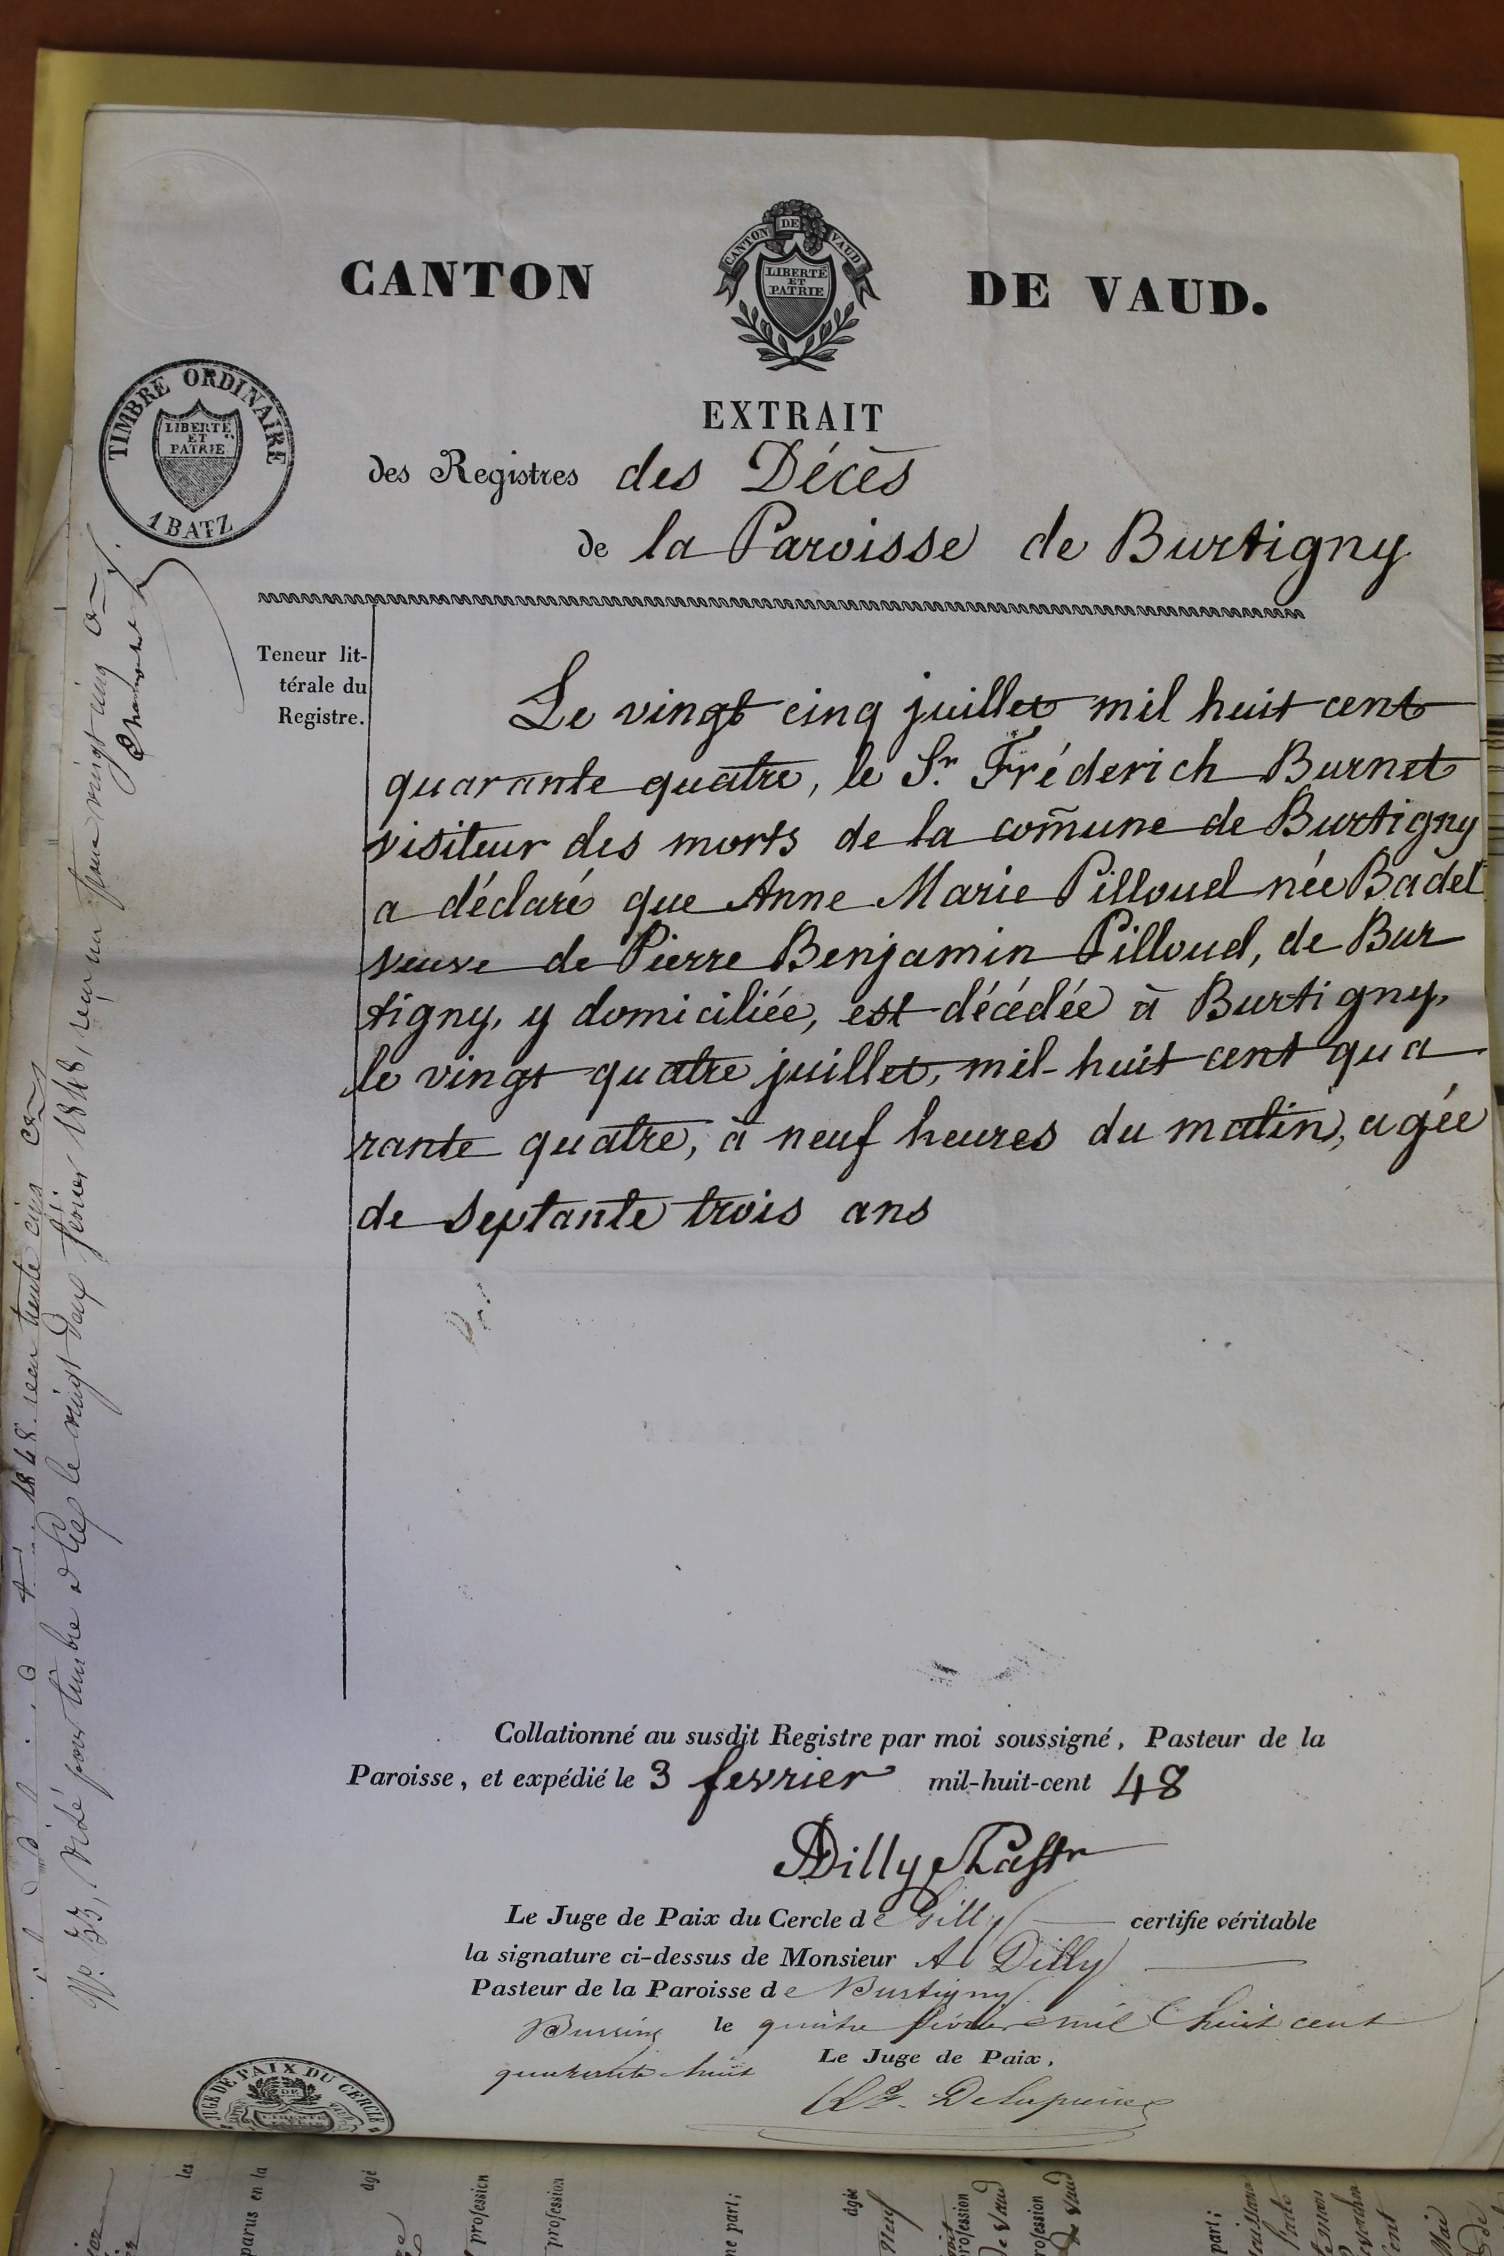 CANTON DE VAUD.
CANTON DE VAUD
LIBERTÉ
ET
PATRIE
TIMBRE ORDINAIRE
LIBERTÉ
ET
PATRIE
1 BATZ
EXTRAIT
des Registres des Décès
de la Paroisse de Burtigny
Teneur lit-
térale du
Registre.
Le vingt cinq juillet mil huit cent
quarante quatre, le Sr. Fréderich Burnet
visiteur des morts de la com̃une de Burtigny
a déclaré que Anne Marie Pilloud née Badel
veuve de Pierre Benjamin Pilloud, de Bur
tigny, y domiciliée, est décédée à Burtigny,
le vingt quatre juillet, mil-huit cent qua
rante quatre, à neuf heures du matin, agée
de septante trois ans
Collationné au susdit Registre par moi soussigné, Pasteur de la
Paroisse, et expédié le 3 fevrier mil-huit-cent 48
ADilly Pastr
Le Juge de Paix du Cercle de Gilly certifie véritable
la signature ci-dessus de Monsieur Al Dilly
Pasteur de la Paroisse de Burtigny
Bursins le quatre février mil huit cent
quarante huit
Le Juge de Paix,
JUGE DE PAIX DU CERCLE
N°. 33, Visé pour timbre à le vingt deux février 1848, reçu un franc vingt cinq
1848. reçu trente cinq
les
parus en la
âgé
profession
profession
ne part;
âgée
neuf
profession
de Vaud
profession
de Vaud
part;
Mai
de